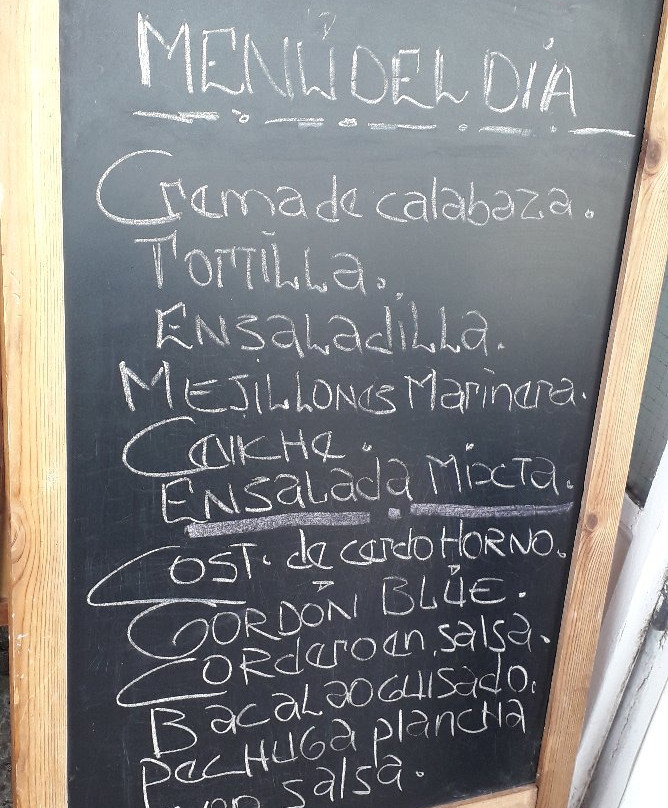 MENÚ DEL DÍA
Crema de calabaza.
TORTILLA.
ENSALADILLA.
MEJILLONES Marinera.
CEVICHE.
ENSALADA MIXTA.
COST. de cerdo HORNO.
CORDÓN BLUE.
CORDERO en salsa.
BACALAO GUISADO.
PECHUGA plancha
con salsa.